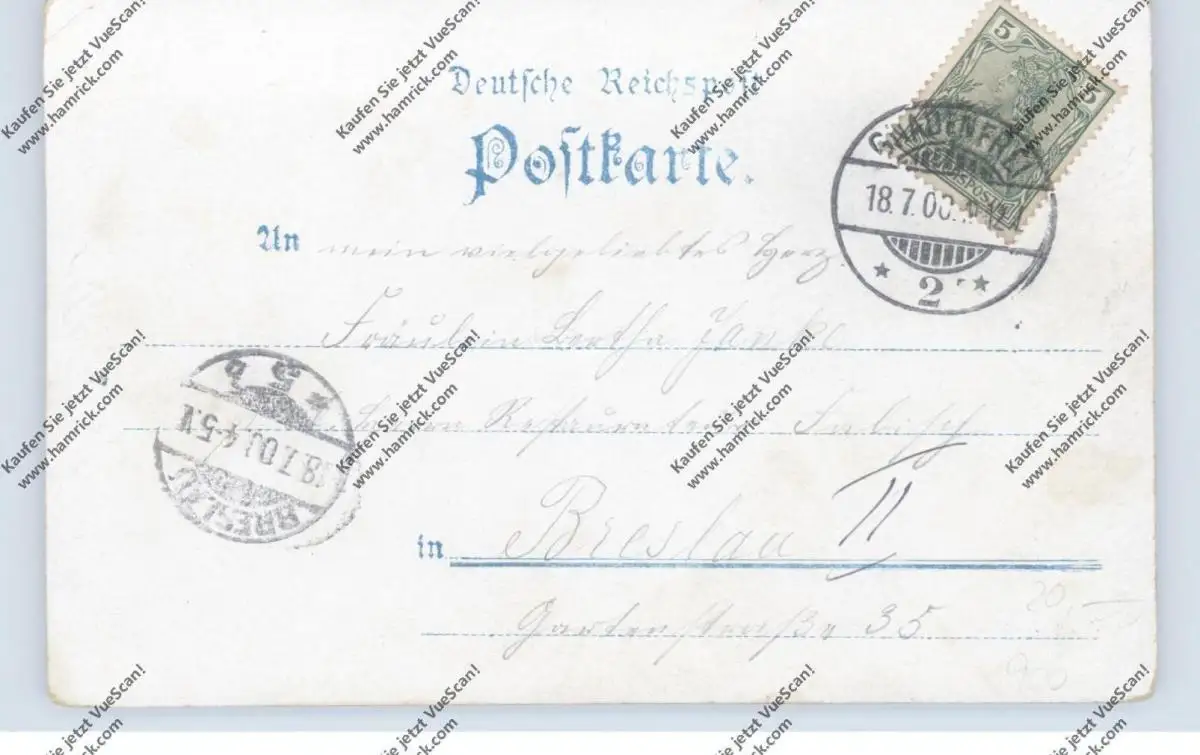 Deutsche Reichspost
Postkarte.
5
5
REICHSPOST
GNADENFREI
18.7.00.
2
An mein vielgeliebtes Herz
Fräulein Bertha Janke
Restaurateur
5 b
18.7.00 4-5.V.
BRESLAU
in Breslau II
Gartenstraße 35
20,—
Kaufen Sie jetzt VueScan!
www.hamrick.com